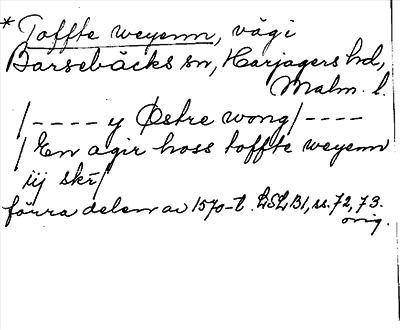 * Toffte weyenn, väg i
Barsebäcks sn, Harjagers hd,
Malm. l.
/---- y Østre wong/----
/ En agir hoss toffte weyenn
iij skr/
förra delen av 1570-t. LSLB1, ss. 72, 73.
orig.